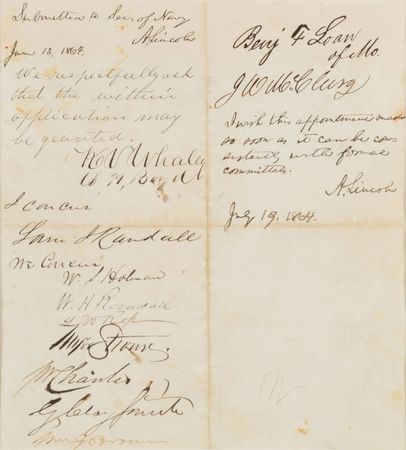 Submitted to Sec. of Navy
A. Lincoln
June 13, 1864.
We respectfully ask
that the within
application may
be granted.
K. V. Whaley
I concur
Sam J Randall
We Concur
W. S. Holman
W. H. Randall
Myer Strouse.
G Clay Smith
Wm G Brown
Benj F Loan
of Mo.
J W McClurg
I wish this appointment made
so soon as it can be con-
sistently with former
committals.
A. Lincoln
July 19, 1864.